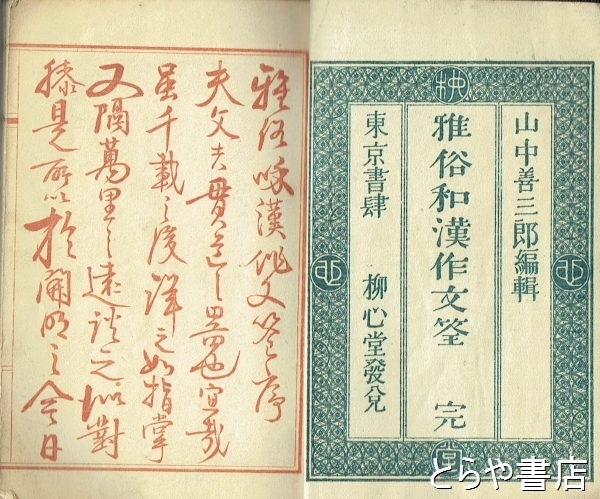 山中善三郎編輯
雅俗和漢作文筌 完
東京書肆 柳心堂發兌
柳
堂
雅俗咊漢作文筌序
夫文者貫道之器也宜哉
虽千載之後詳之如指掌
又隔萬里之遠談之似對
膝是所以於開明之今日
とらや書店